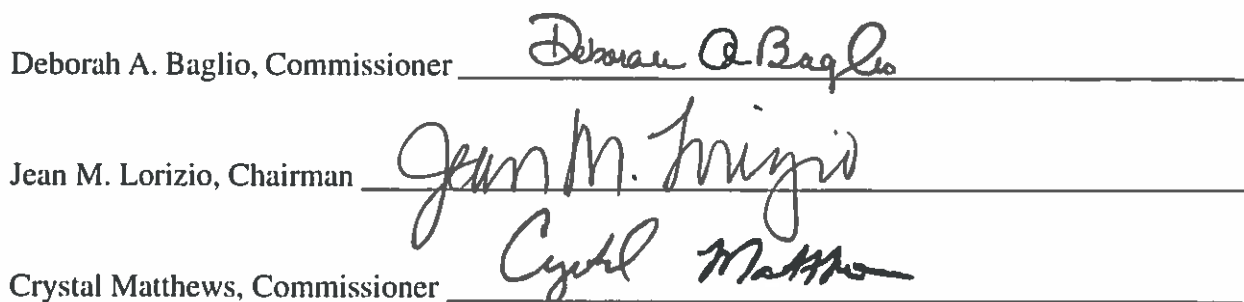 Deborah A. Baglio, Commissioner Deborah A Baglio
Jean M. Lorizio, Chairman Jean M. Lorizio
Crystal Matthews, Commissioner Crystal Matthews